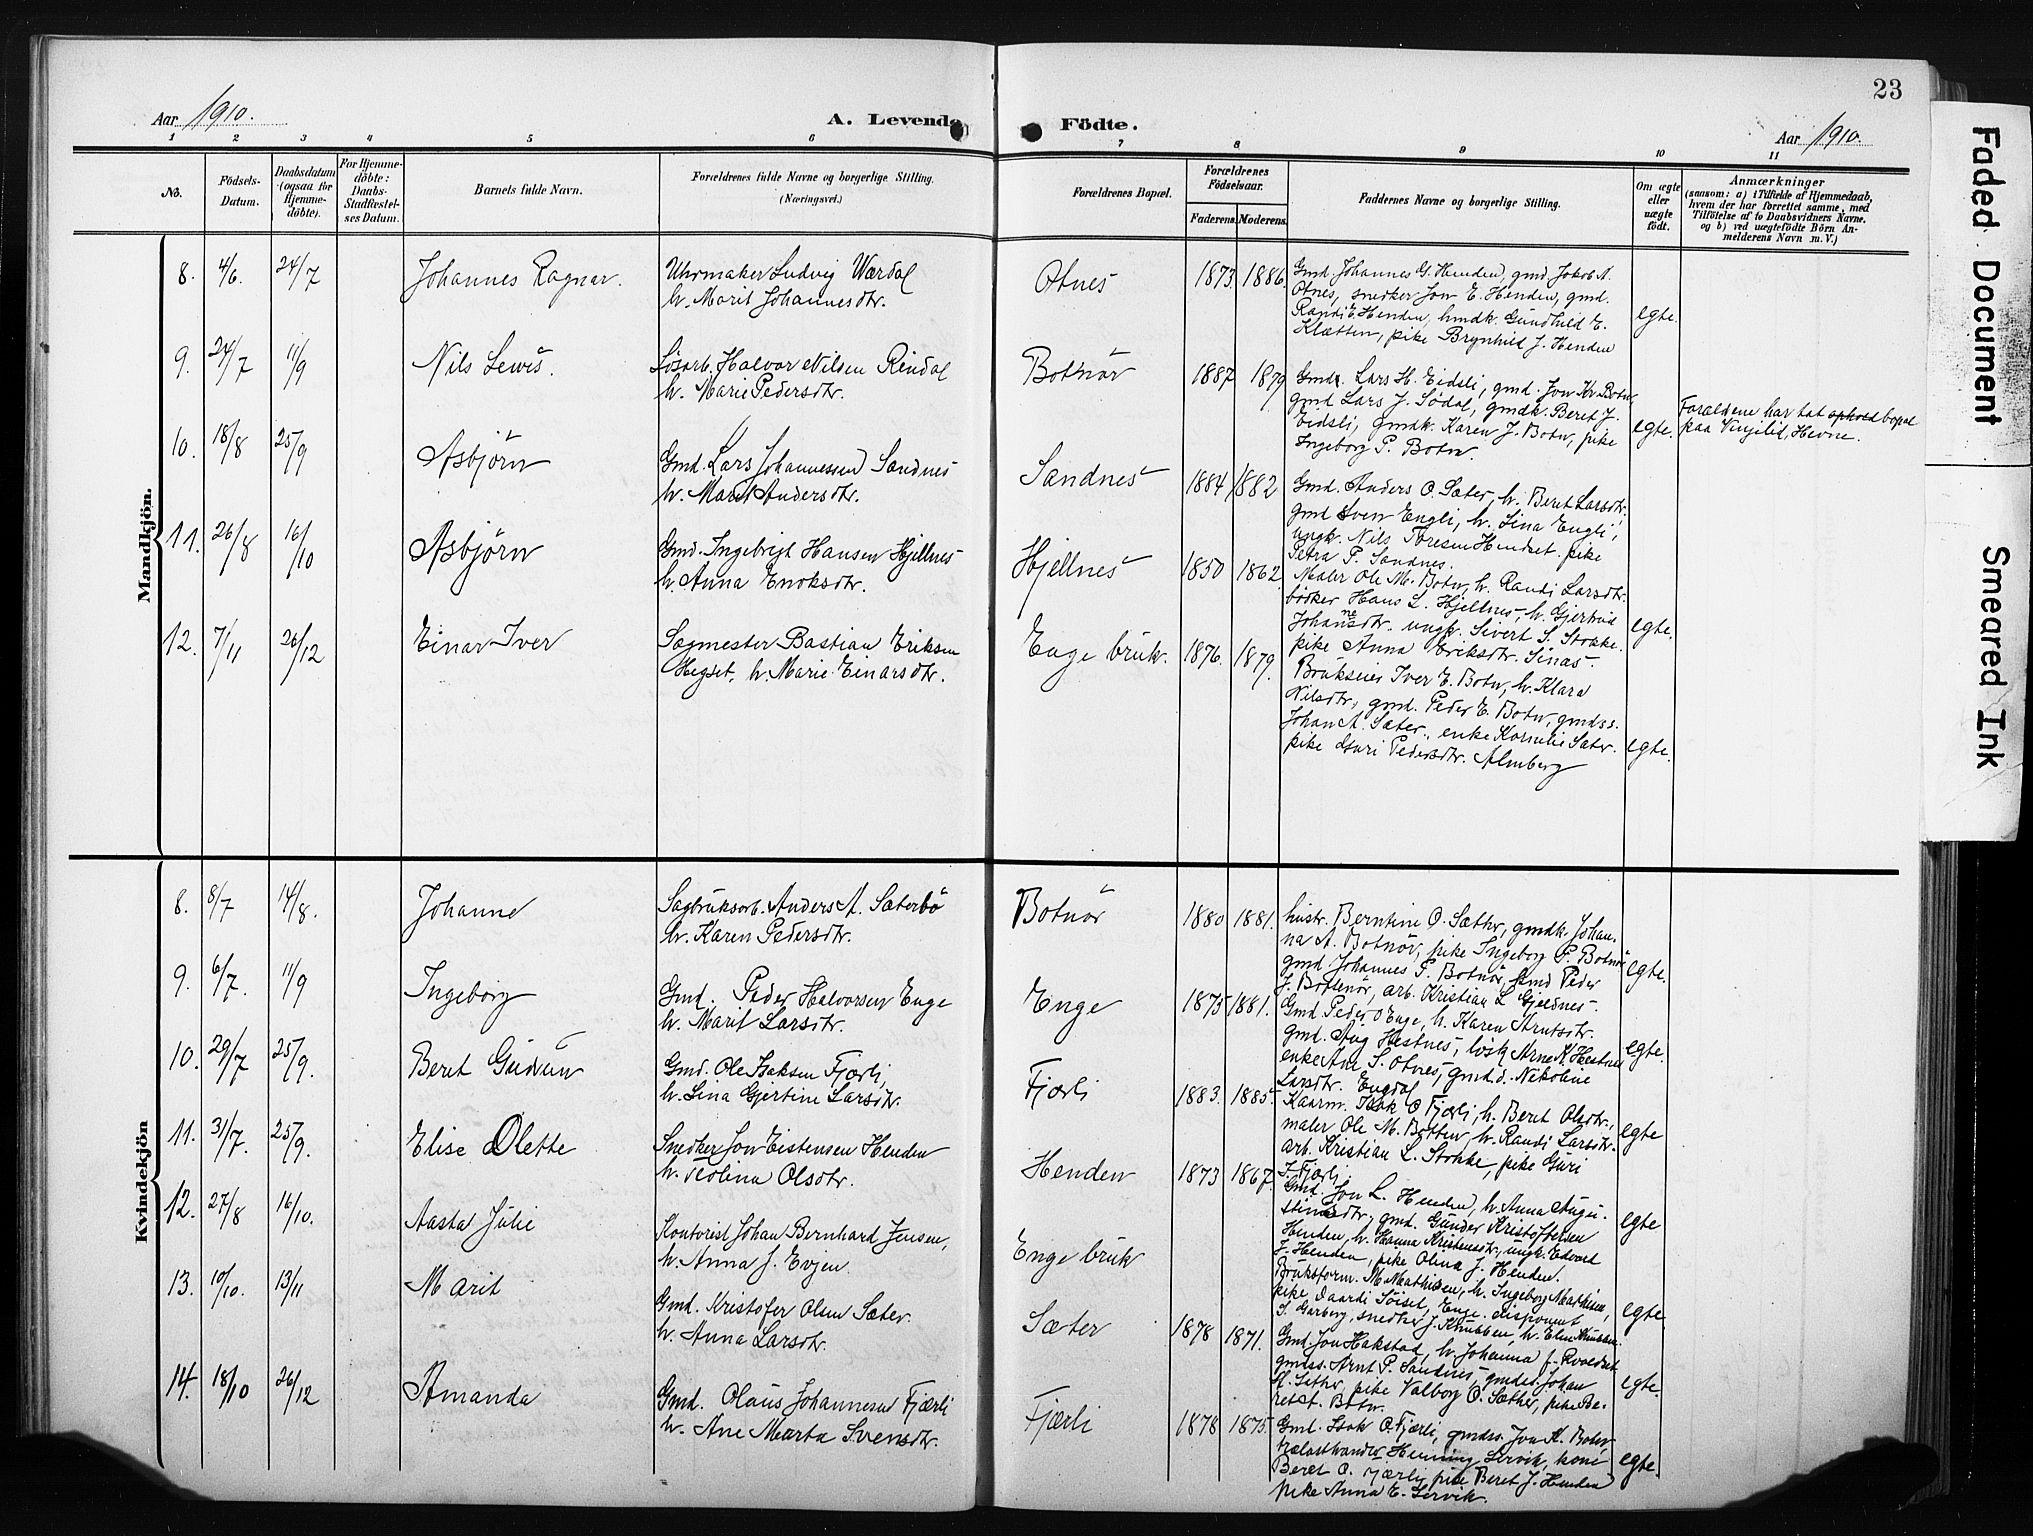 23
Aar 1910.
A. Levende Födte.
Aar 1910.
1 2 3 4 5 6 7 8 9 10 11
No.
Födsels-Datum.
Daabsdatum (ogsaa for Hjemme-döbte).
For Hjemme-döbte: Daabs-Stadfæstel-ses Datum.
Barnets fulde Navn.
Forældrenes fulde Navne og borgerlige Stilling. (Næringsvei.)
Forældrenes Bopæl.
Forældrenes Födselsaar.
Faderens. Moderens.
Faddernes Navne og borgerlige Stilling.
Om ægte eller uægte födt.
Anmærkninger
(saasom: a) i Tilfælde af Hjemmedaab,
hvem der har forrettet samme, med
Tilföielse af to Daabsvidners Navne,
og b) ved uægtefödte Börn An-
melderens Navn m. V.)
Mandkjön.
8. 4/6. 24/7 Johannes Ragnar. Uhrmaker Ludvig Værdal
h. Marit Johannesdtr.
Otnes 1873 1886
Gmd. Johannes G. Henden, gmd. Jakob A.
Otnes, snedker Jon E. Henden, gmd.
Randi E. Henden, hmdk. Gundhild E.
Klætten, pike Brynhild J. Henden
egte.
9. 24/7 11/9 Nils Lewis. Løsarb. Halvor Nilsen Rindal
h. Marie Pedersdtr.
Botnör 1887 1879
Gmd. Lars H. Eidsli, gmd. Jon Kr. Botn,
gmd Lars J. Sødal, gmdk. Beret J.
Eidsli, gmdk. Karen J. Botn, pike
Ingeborg P. Botn.
egte.
Forældrene har tat ophold bopæl
paa Vinjelid, Hevne.
10. 18/8 25/9 Asbjörn Gmd. Lars Johannessen Sandnes
h. Marit Andersdtr.
Sandnes 1884 1882
Gmd. Anders O. Sæter, h. Beret Larsdtr.,
gmd Sven Engli, h. Lina Engli,
ungk. Nils Toresen Hendset. pike
Petra P. Sandnes.
11. 26/8 16/10 Asbjörn Gmd. Ingebrigt Hansen Hjellnes
h. Anna Enoksdtr.
Hjellnes 1850 1862
Maler Ole M. Botn, h. Randi Larsdtr.
bødker Hans L. Hjellnes, h. Gjertrud
Johannesdtr. ungk. Sivert S. Stokke.
pike Anna Eriksdtr. Sinas.
egte.
12. 7/11 26/12 Einar Iver Sagmester Bastian Eriksen
Hegset, h. Marie Einarsdtr.
Enge bruk. 1876. 1879.
Brukseier Iver E. Botn, h. Klara
Nilsdtr, gmd. Peder E. Botn, gmdss.
Johan A. Sæter., enke Kornelie Sæter.
pike Guri Pedersdtr. Almberg
egte.
Kvindekjön
8. 8/7 14/8. Johanne Sagbruksarb. Anders A. Sæterbö
h. Karen Pedersdtr.
Botnör 1880 1881.
hustr. Berntine O. Sæther, gmdk. Johan-
na A. Botnör, pike Ingeborg P. Botnör
gmd. Johannes P. Botnör, gmd Peder
J. Bottenör, arb. Kristian L. Gjeldnes.
egte.
9. 6/7. 11/9 Ingeborg Gmd. Peder Halvorsen Enge
h. Marit Larsdtr.
Enge 1875 1881.
Gmd Peder O Enge, h. Karen Arntsdtr.
gmd. Aug Hestnes, løsk Arne K Hestnes
enke Ane S. Otnes, gmd.d. Nikoline
Larsdtr. Engdal
egte.
10. 29/7 25/9. Beret Gudrun Gmd. Ole Isaksen Fjærli,
h. Lina Gjertine Larsdtr.
Fjærli 1883. 1885.
Kaarm. Isak O Fjærli, h. Beret Olsdtr.,
maler Ole M. Botten, h. Randi Larsdtr.
arb. Kristian L. Stokke, pike Guri
I. Fjærli
egte
11. 31/7. 25/9. Elise Olette Snedker Jon Eistensen Henden
h. Teolina Olsdtr.
Henden 1873 1867.
Gmd. Jon L. Henden, h. Anna Augu-
stinsdtr, gmd. Gunder Kristoffersen
Henden, h. Hanna Kristensdtr., ungk. Edvard
J. Henden, pike Olina J. Henden.
egte
12. 27/8 16/10. Aasta Julie Kontorist Johan Bernhard Jensen,
h. Anna J. Evjen.
Enge bruk
Bruksform. M. Mathisen, h. Ingeborg Mathisen,
pike Daardi Söiset, Enge. disponent
S. Garberg, snedker J. Knubben, h. Elen Knubben.
egte.
13. 10/10. 13/11 Marit Gmd. Kristofer Olsen Sæter.
h. Anna Larsdtr.
Sæter 1878 1871.
Gmd. Jon Hakstad, h. Johanna
gmdss. Arnt P. Sandnes, gmdss. Johan
A. Sether, pike Valborg O. Sæther, pike Be-
ret A. Botn.
egte.
14. 18/10 26/12 Amanda Gmd. Olaus Johannesen Fjærli
h. Ane Marta Svensdtr.
Fjærli 1878 1875.
Gmd. Isak O. Fjærli, gmdss. Jon K. Botn,
trælasthandler Henning Servik, kone
Beret O. Fjærli, pike Beret J. Henden
pike Anna E. Servik.
egte.
Faded Document
Smeared Ink